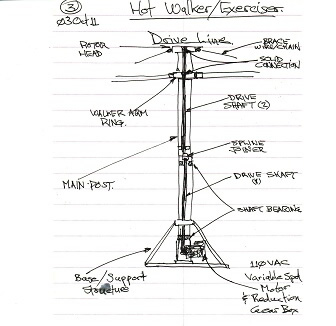 ③ Hot Walker/Exerciser.
03 Oct 11
Drive Line
ROTOR
HEAD
BRACE
WIRE/CHAIN
SOLID
CONNECTION
DRIVE
SHAFT (2)
WALKER ARM
RING.
SPLINE
JOINER
MAIN POST.
DRIVE SHAFT
(1)
SHAFT BEARING
Base Support
Structure
110 VAC
Variable Spd
Motor
& Reduction
Gear Box